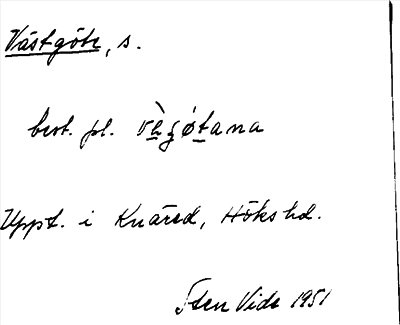 Västgöte, s.
best. pl. vὲgǿtana
Uppt. i Knäred, Höks hd.
Sten Vide 1951